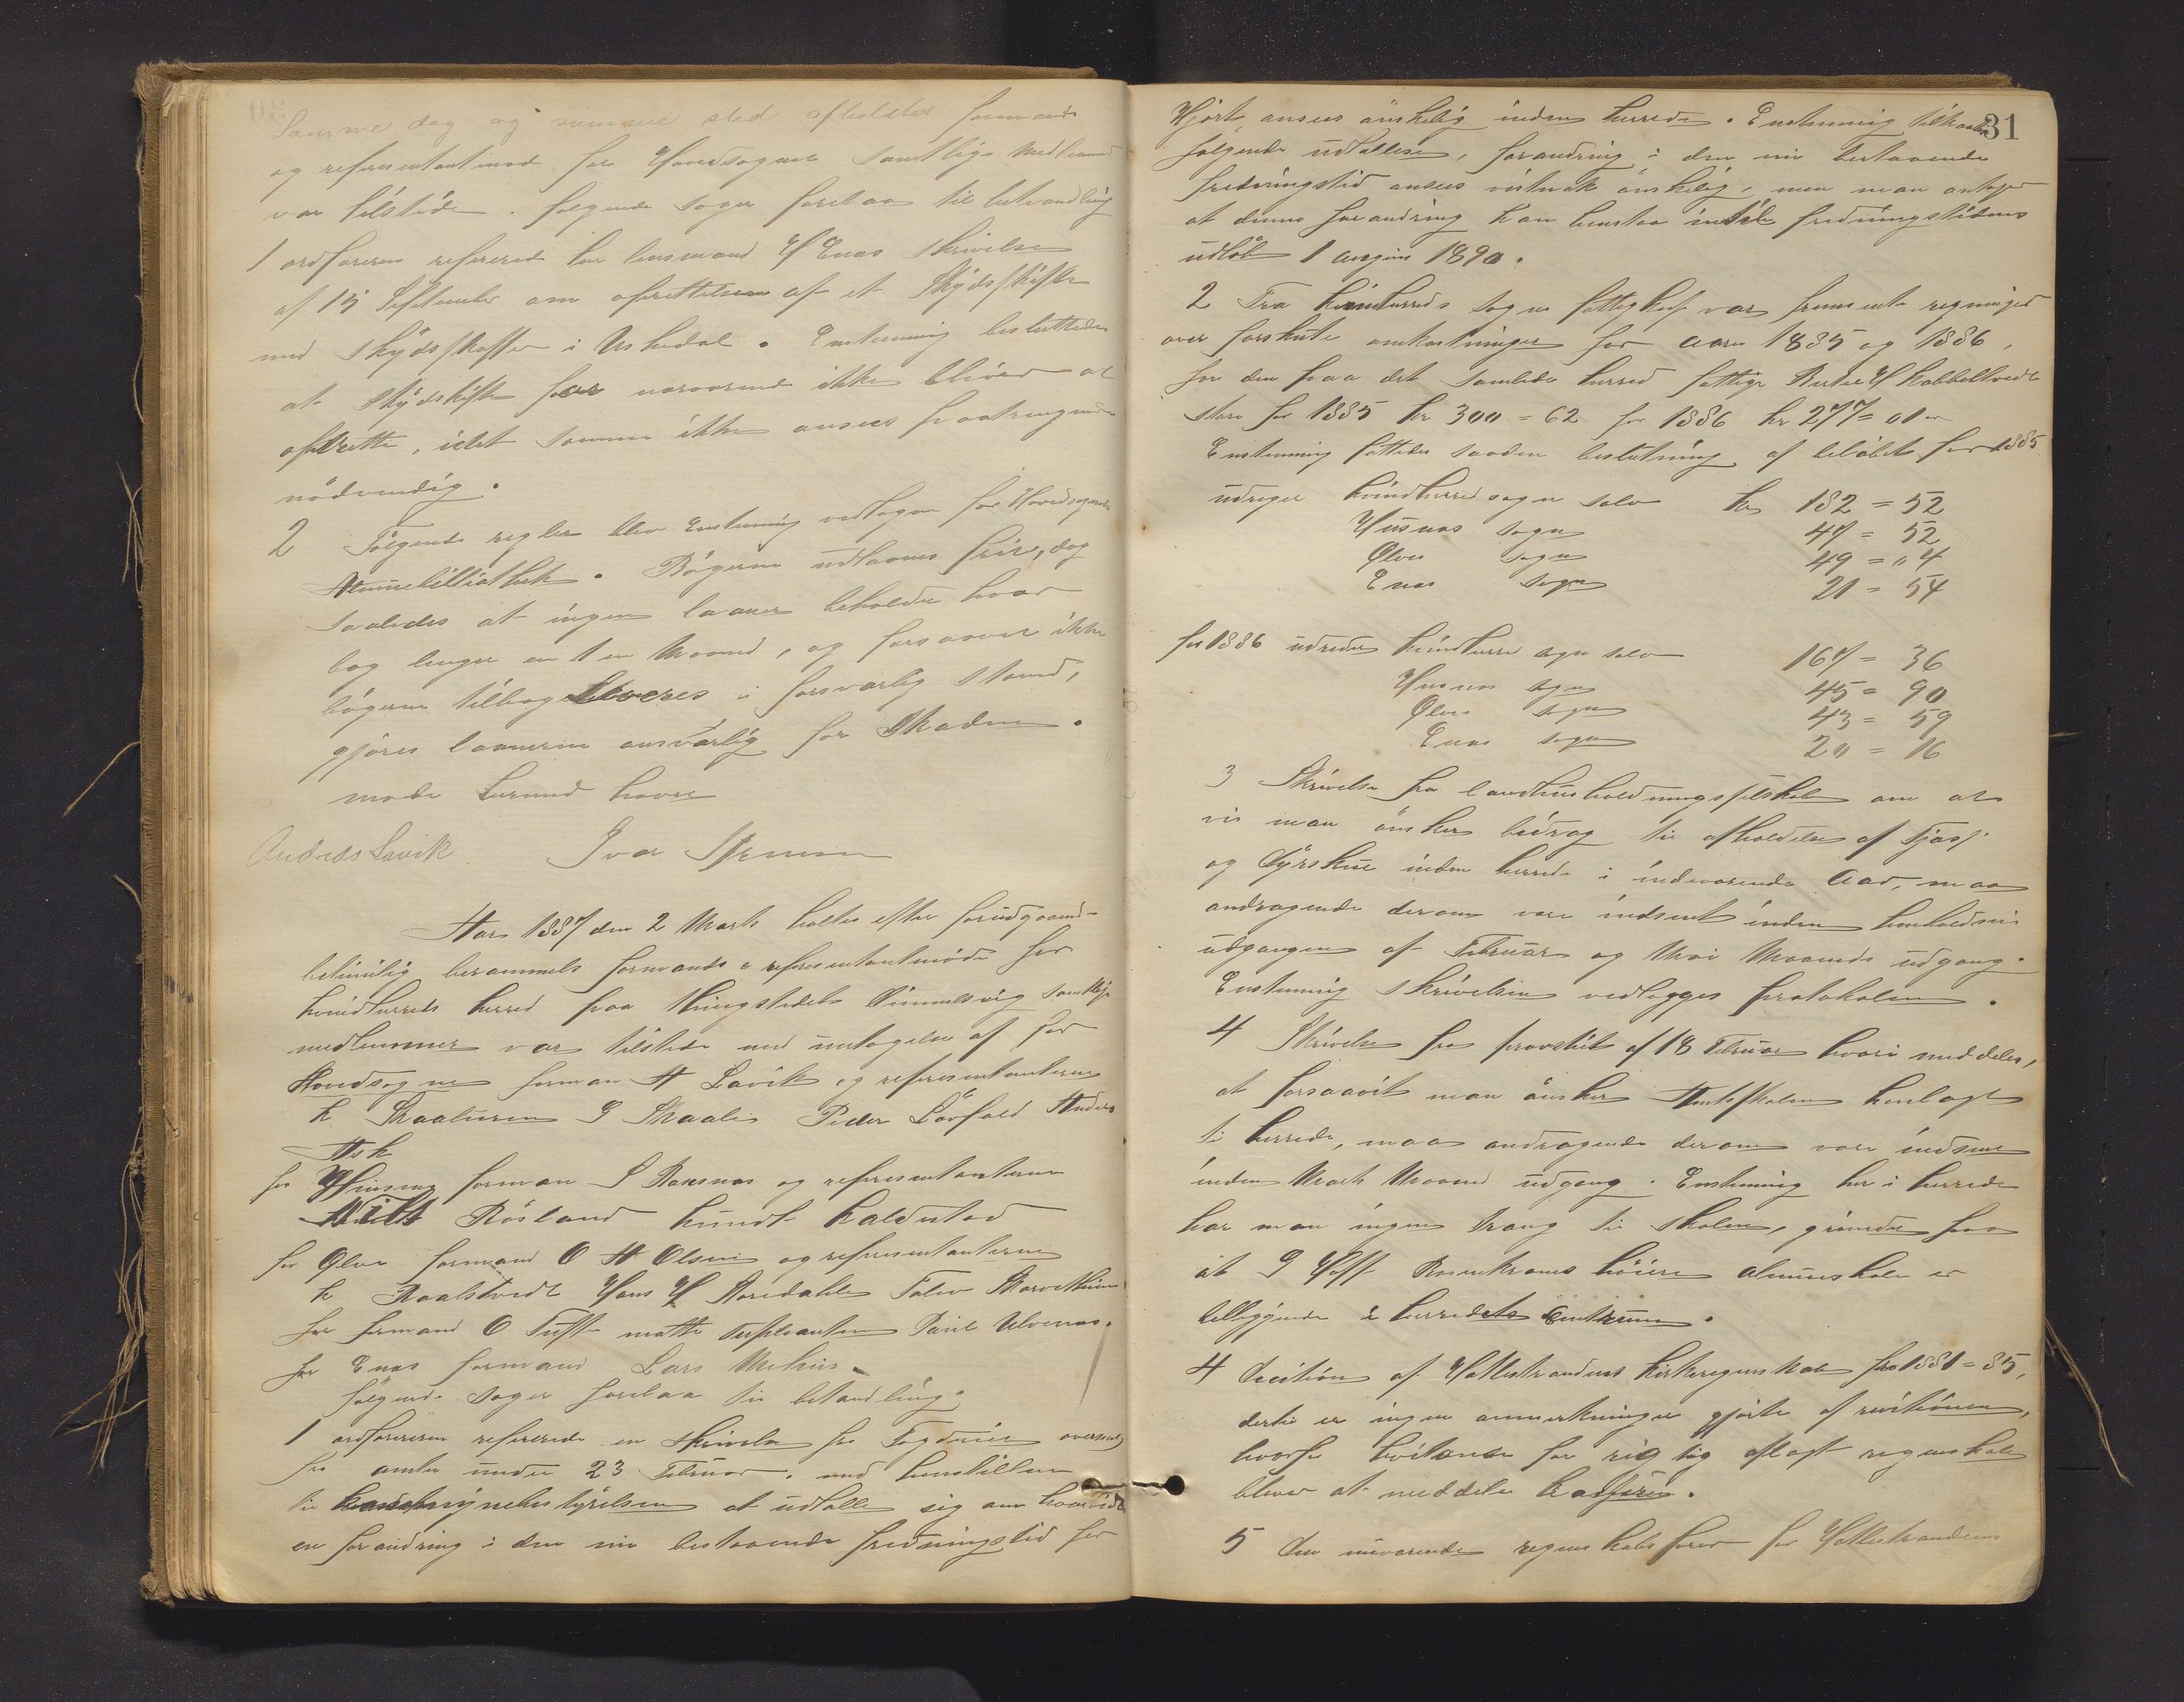 Samme dag og samme sted afholdtes formands
og representantmøde for Hovedsognet samtlige Medlemmer
var tilstede. følgende sager forelaa til behandling
1 ordføreren refererede lensmand H Enæs skrivelse
af 15 September om oprettelsen af et Skydsskifte
med skydsskaffer i Uskedal. Enstemmig besluttedes
at skydskifte for nærværende ikke bliver at
oprette, idet samme ikke ansees paatrængende
nødvendig.
2 Følgende regler blev Enstemmig vedtagen for Hovedsognets
Almuebibliothek. Bøgerne udlaanes frie, dog
saaledes at ingen laaner beholder hver
bog lenger en 1 en Maaned, og forsaavet ikke
bøgerne tilbageleveres i forsvarlig stand,
gjøres laanerne ansvarlig for Skaden.
møde hævet
Anders Lavik Ivar
Aar 1887 den 2 Marts holtes efter forudgaaende
betimelig berammelse formands & representantmøde for
kvindherreds herred paa thingstedet Dimmelsvig samtlige
medlemmer var tilstede med untagelse af for
Hovedsognet forman A Lavik og representanterne
h G Skaale Peder Anders
Ask
for forman S og representanterne
Nils Røsland knudt
for Ølve formand O H Olsen og representanterne
h Hans H
for formand O Tufte møtte supleanten Paul Ulvenæs.
for Enæs formand Lars Mehus.
følgende sager forelaa til behandling.
1 ordføreren refererede en skrivelse fra Fogderiet oversendt
fra amtet under 23 Februar. med henstillen
til herredstyrelsen at udtalle sig om hvorvidt
en forandring i den nu bestaaende fredningstid for
31
Hjort ansees ønskelig inden herredet. Enstemmig
følgende udtallelse, forandring i den nu bestaaende
fredningstid ansees vistnok ønskelig, men man antager
at denne forandring kan henstaa indtil fredningstidens
udløb 1 1890.
2 Fra kvindherreds sogns fattigkas var fremsendt regninger
over forskutte omkostninger for aaret 1885 og 1886,
for den paa det samlede herred fattige H kabbeltvedt
store for 1885 kr 300 = 62 for 1886 kr 277 = 01
Enstemmig fattedes saadan beslutning af beløbet for 1885
udreger kvindherred sogn selv kr 182 = 52
Husnæs sogn 47 = 52
Ølve sogn 49 = 04
Enæs sogn 21 = 54
for 1886 udreder kvindherre sogn selv 167 = 36
Husnæs sogn 45 = 90
Ølve sogn 43 = 59
Enæs sogn 20 = 16
3 Skrivelse fra landhusholdningsselskabet om at
vis man ønsker bidrag til afholdelse af Fjøs
og Dyrskue inden herredet i indeværende Aar, maa
andragende derom være indsent inden henholdsvis
udgangen af Februar og Mai Maaneds udgang.
Enstemmig skrivelsen vedlegges protokolen.
4 Skrivelse fra provstiet af 18 Februar hvori meddeles,
at forsaavit man ønsker Amtsskolen henlagt
til herredet, maa andragende derom være indsent
inden Marts Maaned udgang. Enstemmig her i herredet
har man ingen trang til skolen, grundet paa
at G Hoff Rosenkrones høiere almueskole er
belliggende i herredets Centrum.
4 Decition af Holtestrandens kirkeregnskab for 1881 = 85,
dertil er ingen anmerkninger gjorte af revitionen,
hvorfor kvitance for rigtig aflagt regnskab
bliver at meddele kassereren.
5 Den nuværende regnskabsfører for Holtestrandens